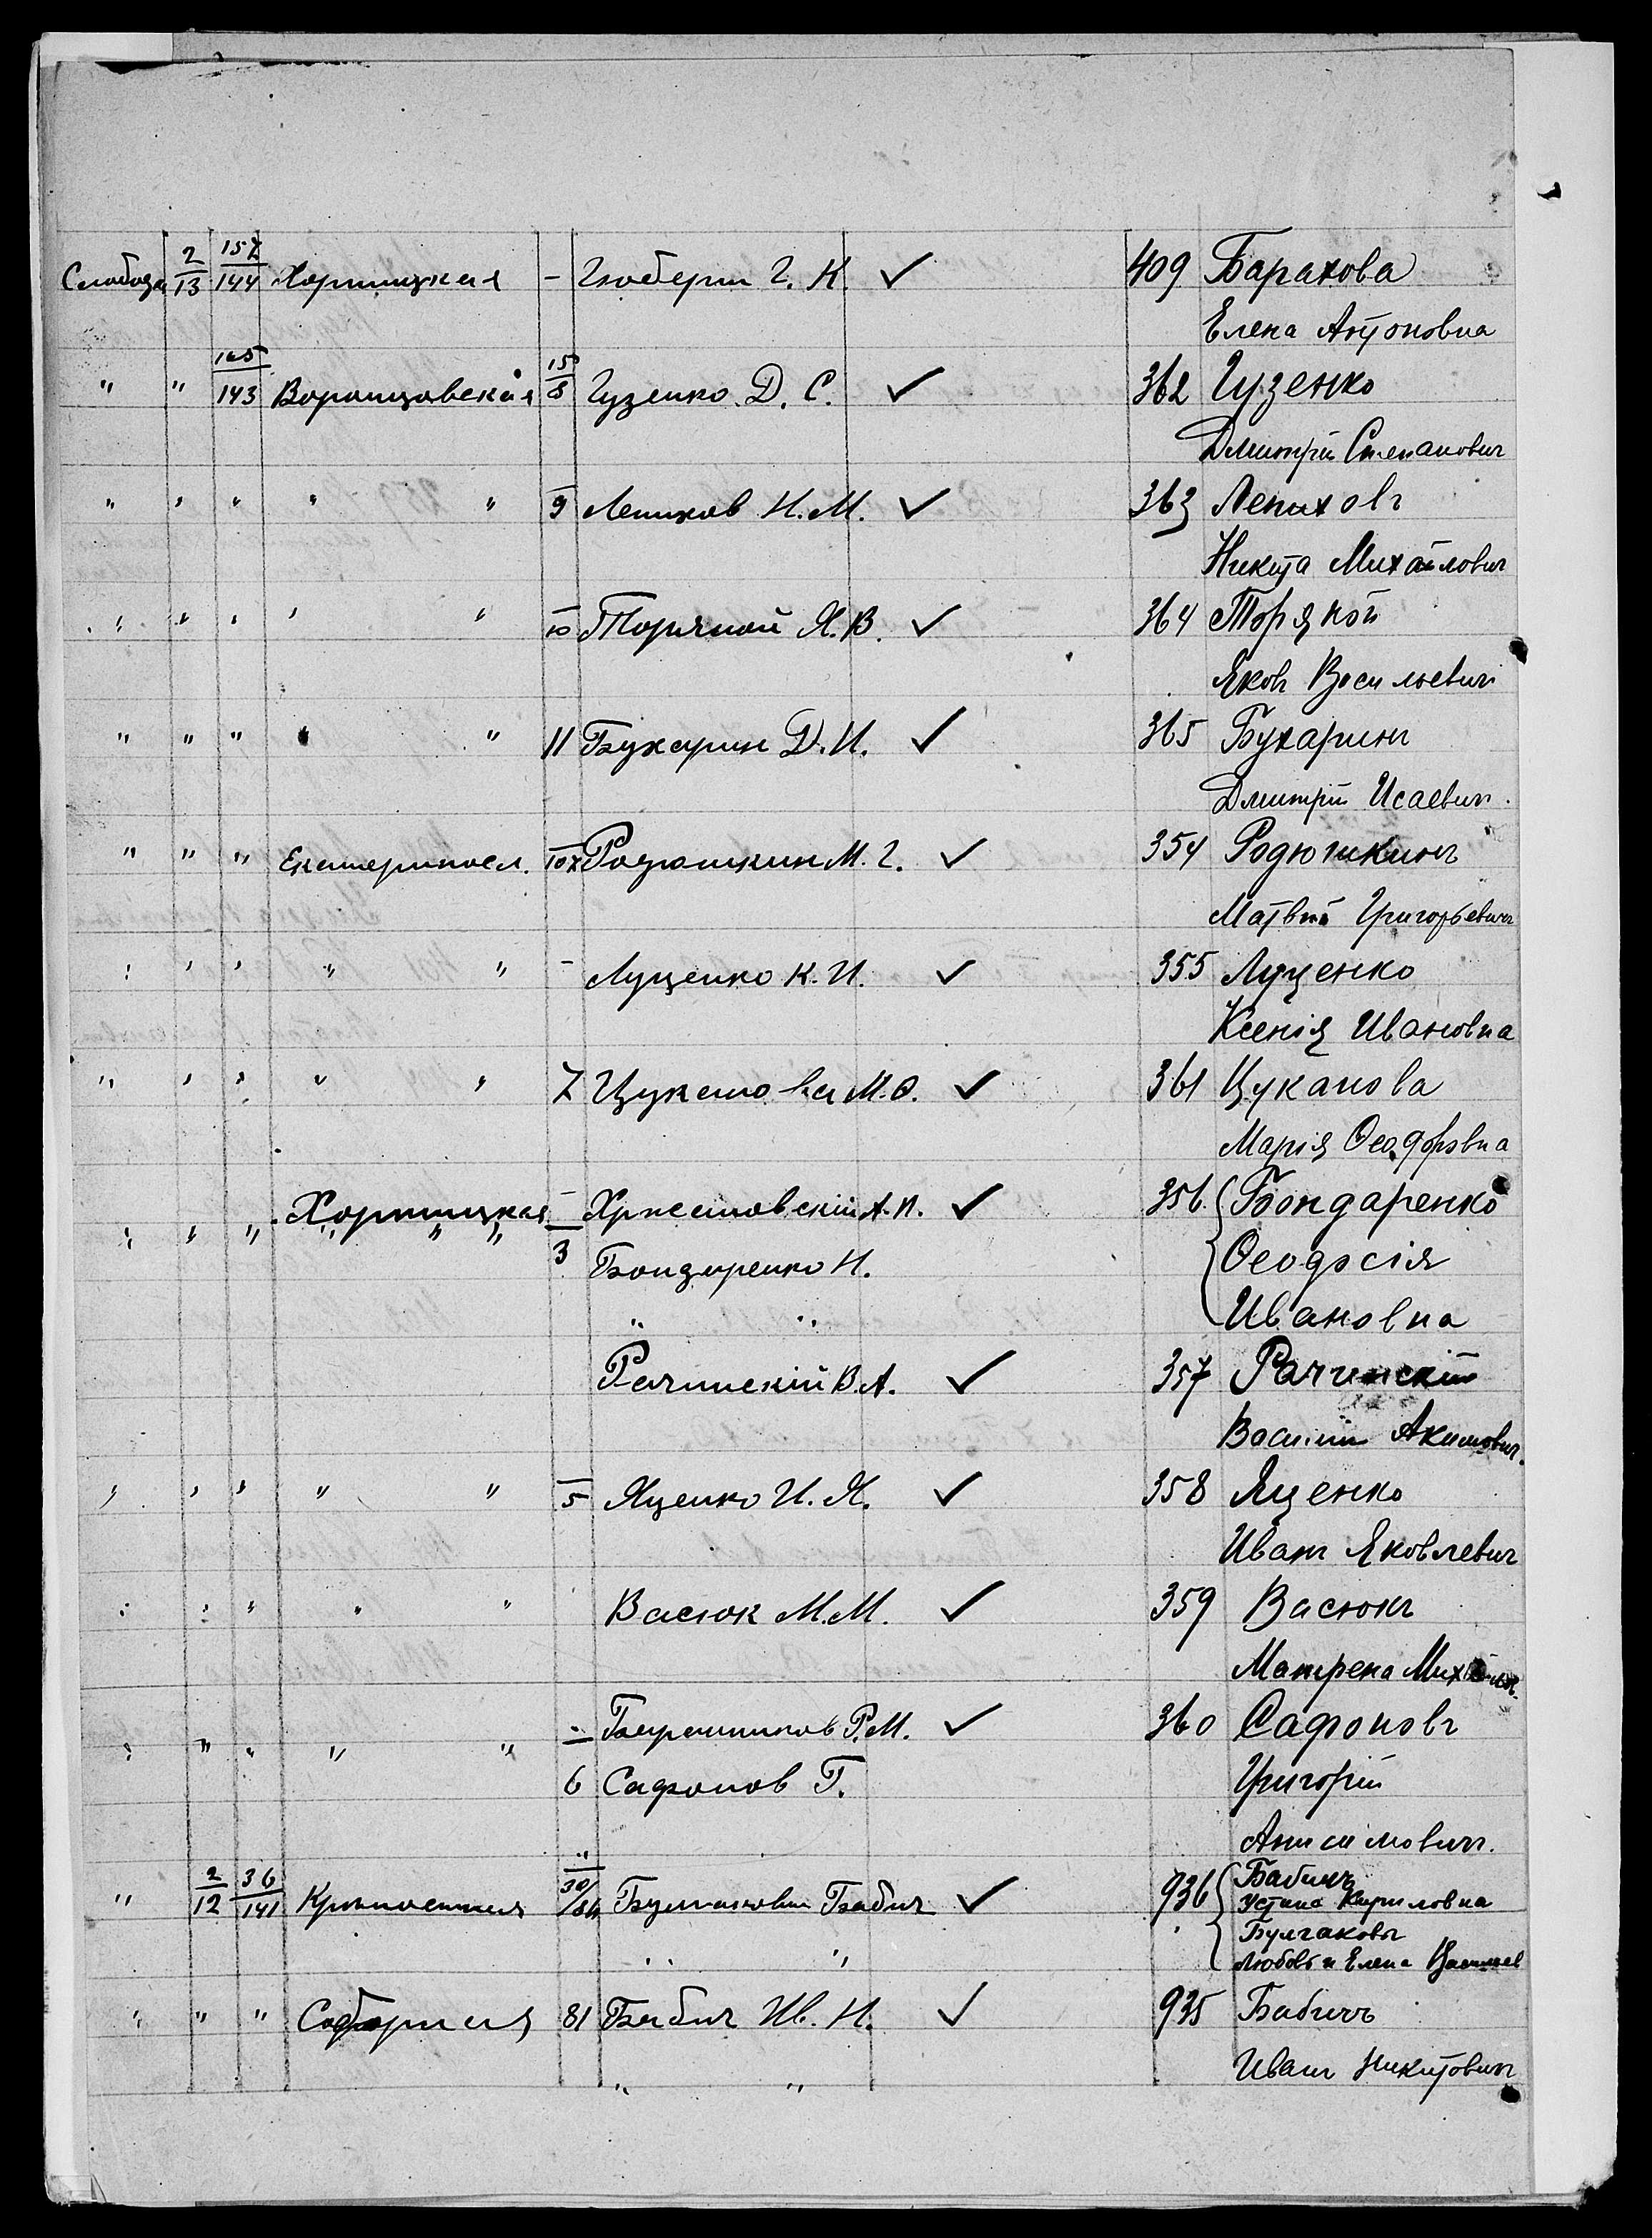 Слобода 2/13 157/144 Хортицкая – Гюберт Г. К. ✓ 409 Барахова
Елена Антоновна
" " 165/143 Воронцовская 15/8 Гузенко Д. С. ✓ 362 Гузенко
Дмитрій Степанович
" " " " " 9 Лепихов Н. М. ✓ 363 Лепиховъ
Никита Михайлович
" " " " " 10 Торяной Я. В. ✓ 364 Торяной
Яковъ Васильевич
" " " " " 11 Бухарин Д. И. ✓ 365 Бухаринъ
Дмитрій Исаевич.
" " " Екатериносл. Родюшкин М. Г. ✓ 354 Родюшкинъ
Матвѣй Григорьевич
" " " " " – Луценко К. И. ✓ 355 Луценко
Ксенія Ивановна
" " " " " 7 Цуканова М. Ѳ. ✓ 361 Цуканова
Марія Ѳеодоровна
" " " Хортицкая – Хржановскій А. И. ✓ 356 Бондаренко
3 Бондаренко Н. Ѳеодосія
" " Ивановна
Рачинскій В. А. ✓ 357 Рачинскій
Василій Акимович.
" " " " " 5 Яценко И. Я. ✓ 358 Яценко
Иванъ Яковлевич
" " " " " Васюк М. М. ✓ 359 Васюкъ
Матрена
" " " " " – Р. М. ✓ 360 Сафоновъ
6 Сафонов Г. Григорій
Анисимович.
" 2/12 36/141 Крѣпостная 30/ Бабич ✓ 936 Бабичъ
Кириловна
Булгаковы
" " Любовь и Елена
" " " Соборная 81 Бабич Ив. Н. ✓ 935 Бабичъ
Иванъ Никитович
" "